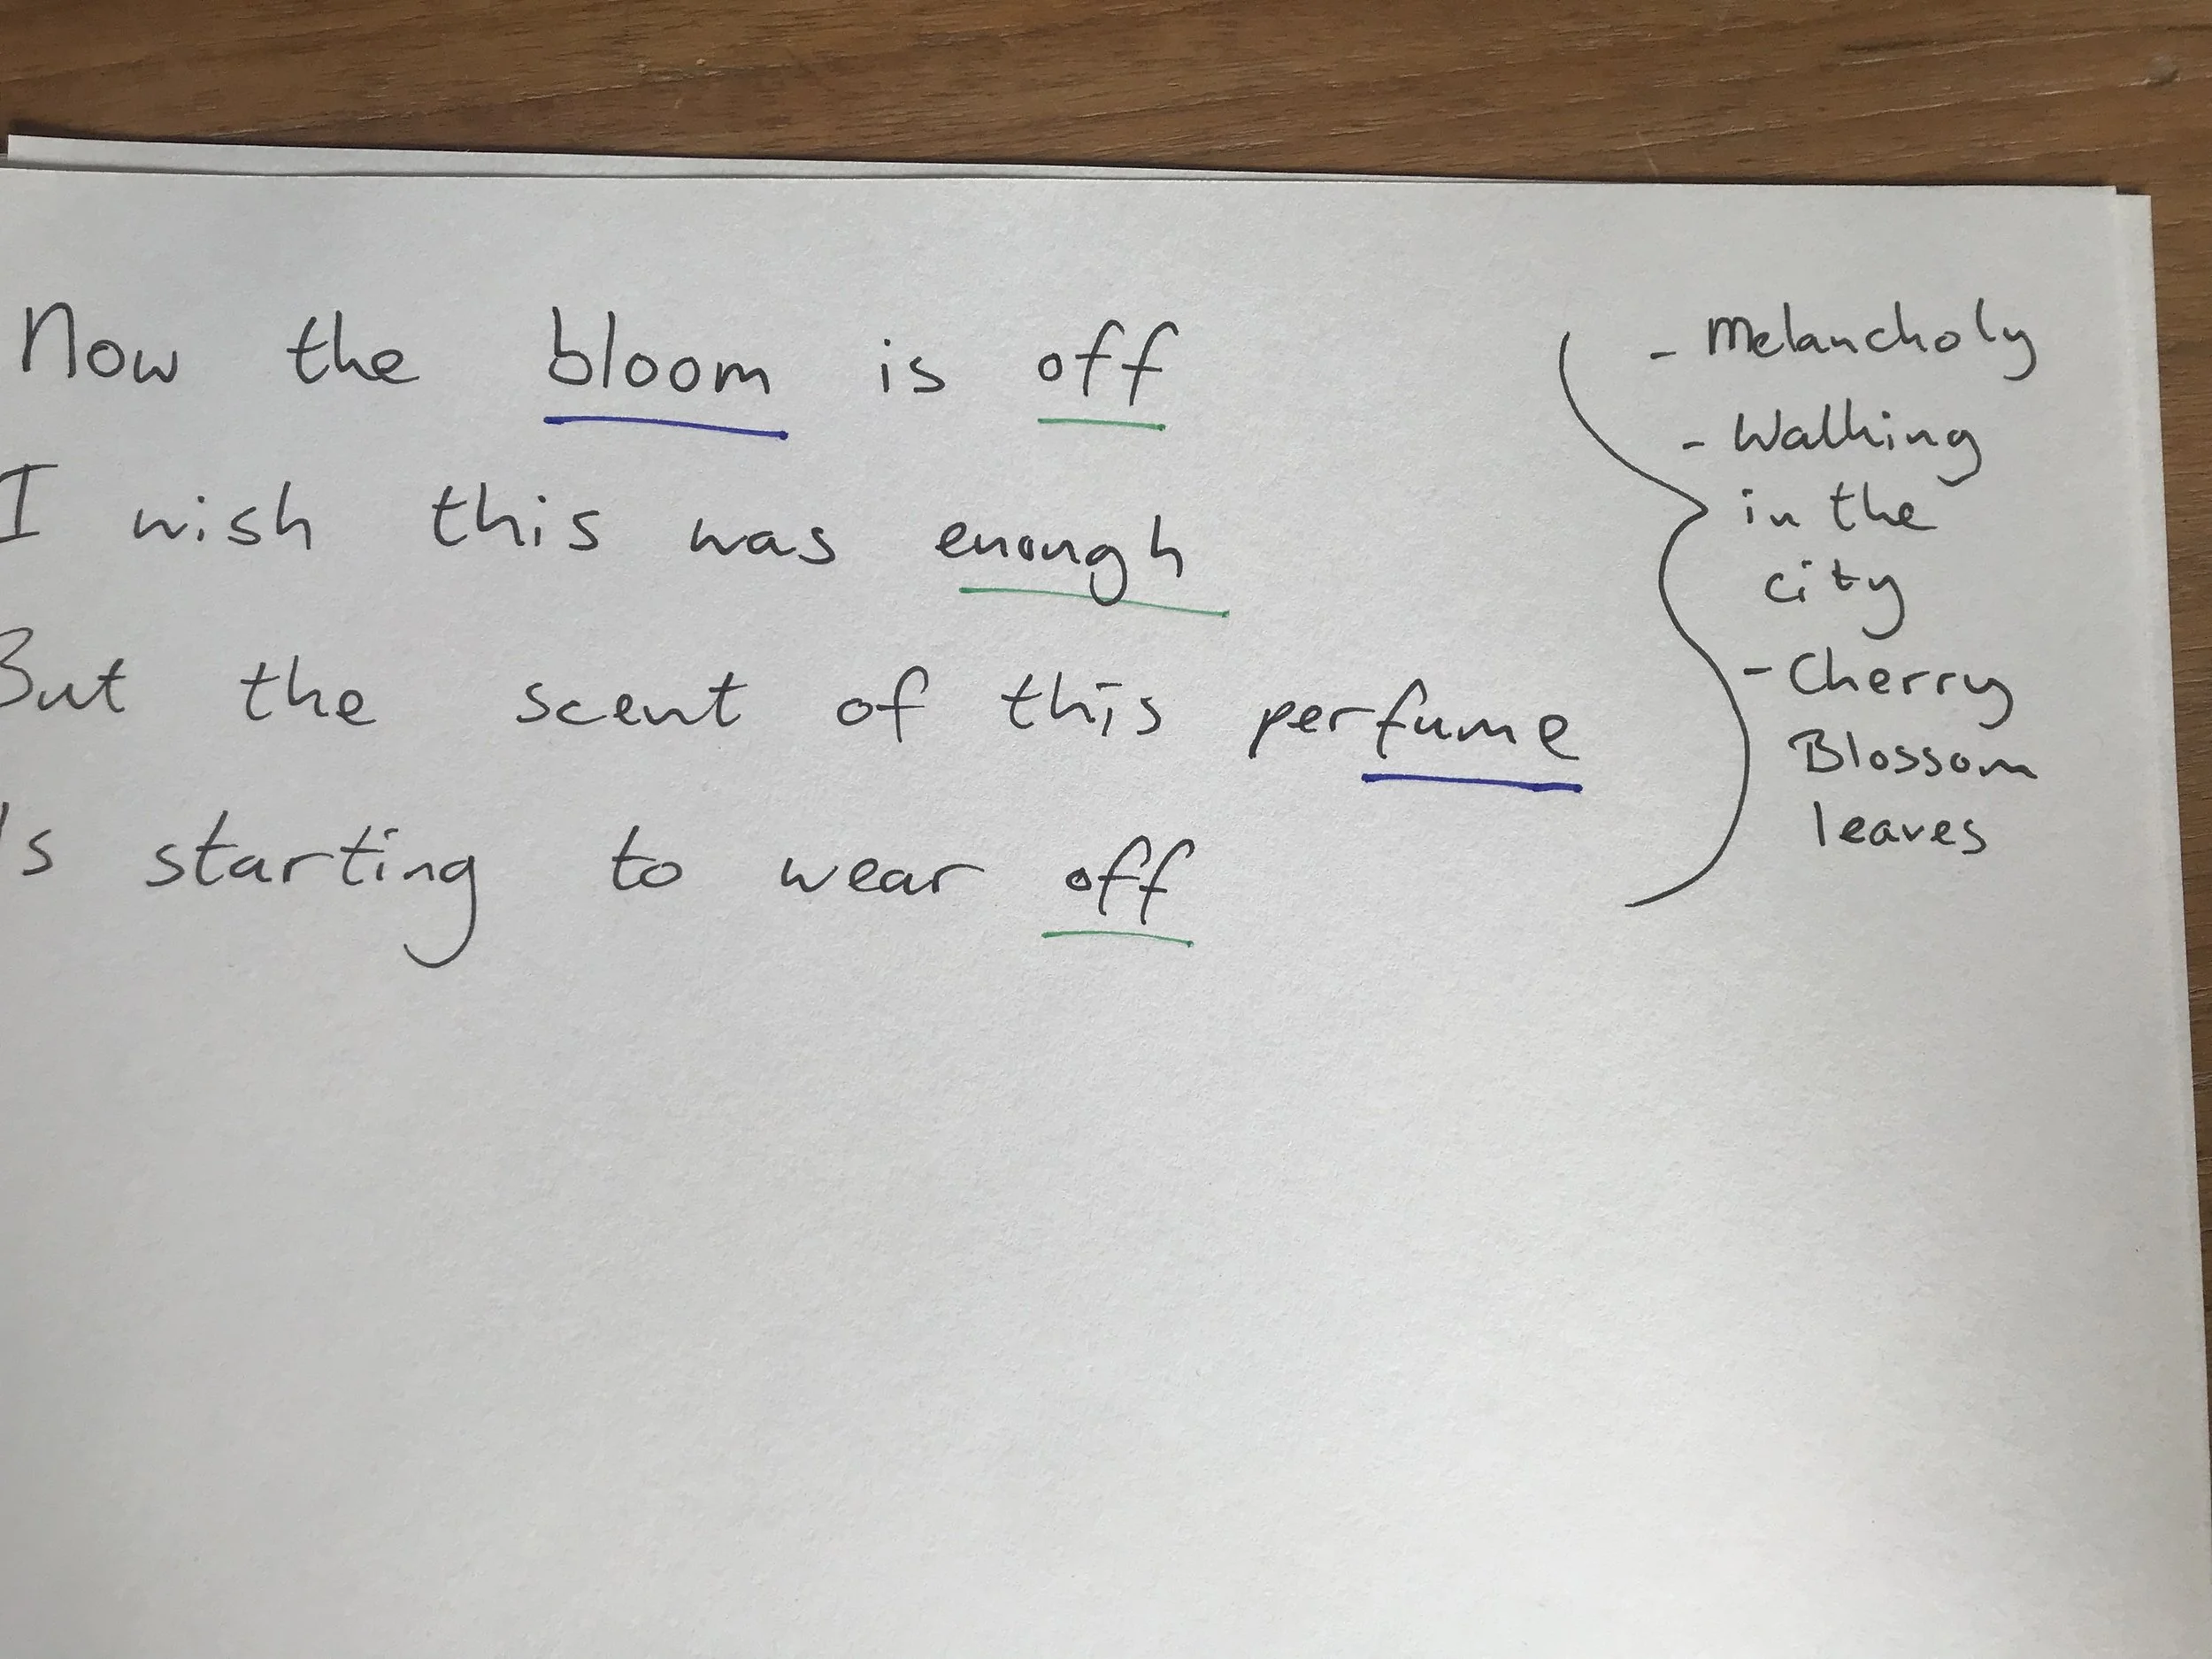 Now the bloom is off
I wish this was enough
But the scent of this perfume
Is starting to wear off
- Melancholy
- Walking
in the
city
- Cherry
Blossom
leaves